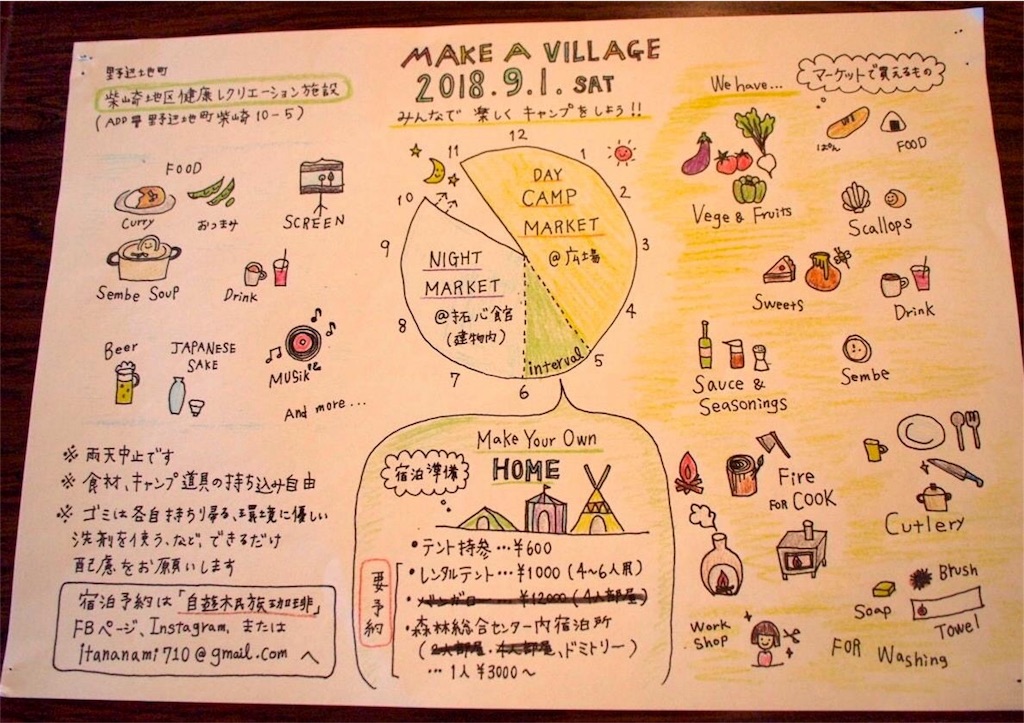 MAKE A VILLAGE
2018.9.1. SAT
みんなで 楽しく キャンプをしよう!!
野辺地町
柴崎地区健康レクリエーション施設
(ADD 野辺地町柴崎10-5)
FOOD
Curry
おつまみ
SCREEN
Sembe Soup
Drink
Beer
JAPANESE
SAKE
MUSiK
And more...
12
1
2
3
4
5
6
7
8
9
10
11
DAY
CAMP
MARKET
@広場
NIGHT
MARKET
@拓心館
(建物内)
interval
We have...
マーケットで買えるもの
Vege & Fruits
ぱん
FOOD
Scallops
Sweets
Drink
Sauce &
Seasonings
Sembe
Fire
FOR COOK
Cutlery
Work
Shop
Soap
Brush
Towel
FOR Washing
Make Your Own
HOME
宿泊準備
・テント持参…¥600
要予約
・レンタルテント…¥1000(4~6人用)
・バンガロー…¥12000(4人部屋)
・森林総合センター内宿泊所
(2人部屋・4人部屋、ドミトリー)
…1人¥3000~
※ 雨天中止です
※ 食材、キャンプ道具の持ち込み自由
※ ゴミは各自持ち帰る、環境に優しい
洗剤を使う、など、できるだけ
配慮をお願いします
宿泊予約は「自遊木民族珈琲」
FBページ、Instagram、または
itananami710@gmail.com へ